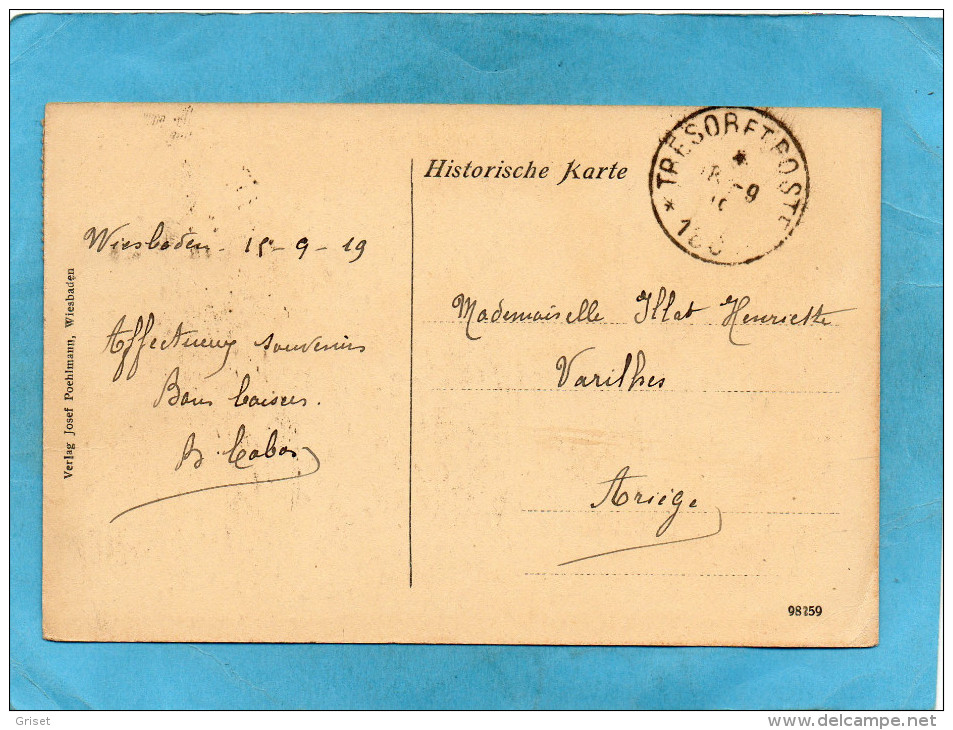 Historische Karte
TRESOR ET POSTES
Wiesbaden - 15-9-19
Affectueux souvenirs
Bons baisers.
Verlag Josef Poehlmann, Wiesbaden
Mademoiselle Illat Henriette
Varilhes
Ariège
98259
Griset
www.delcampe.net